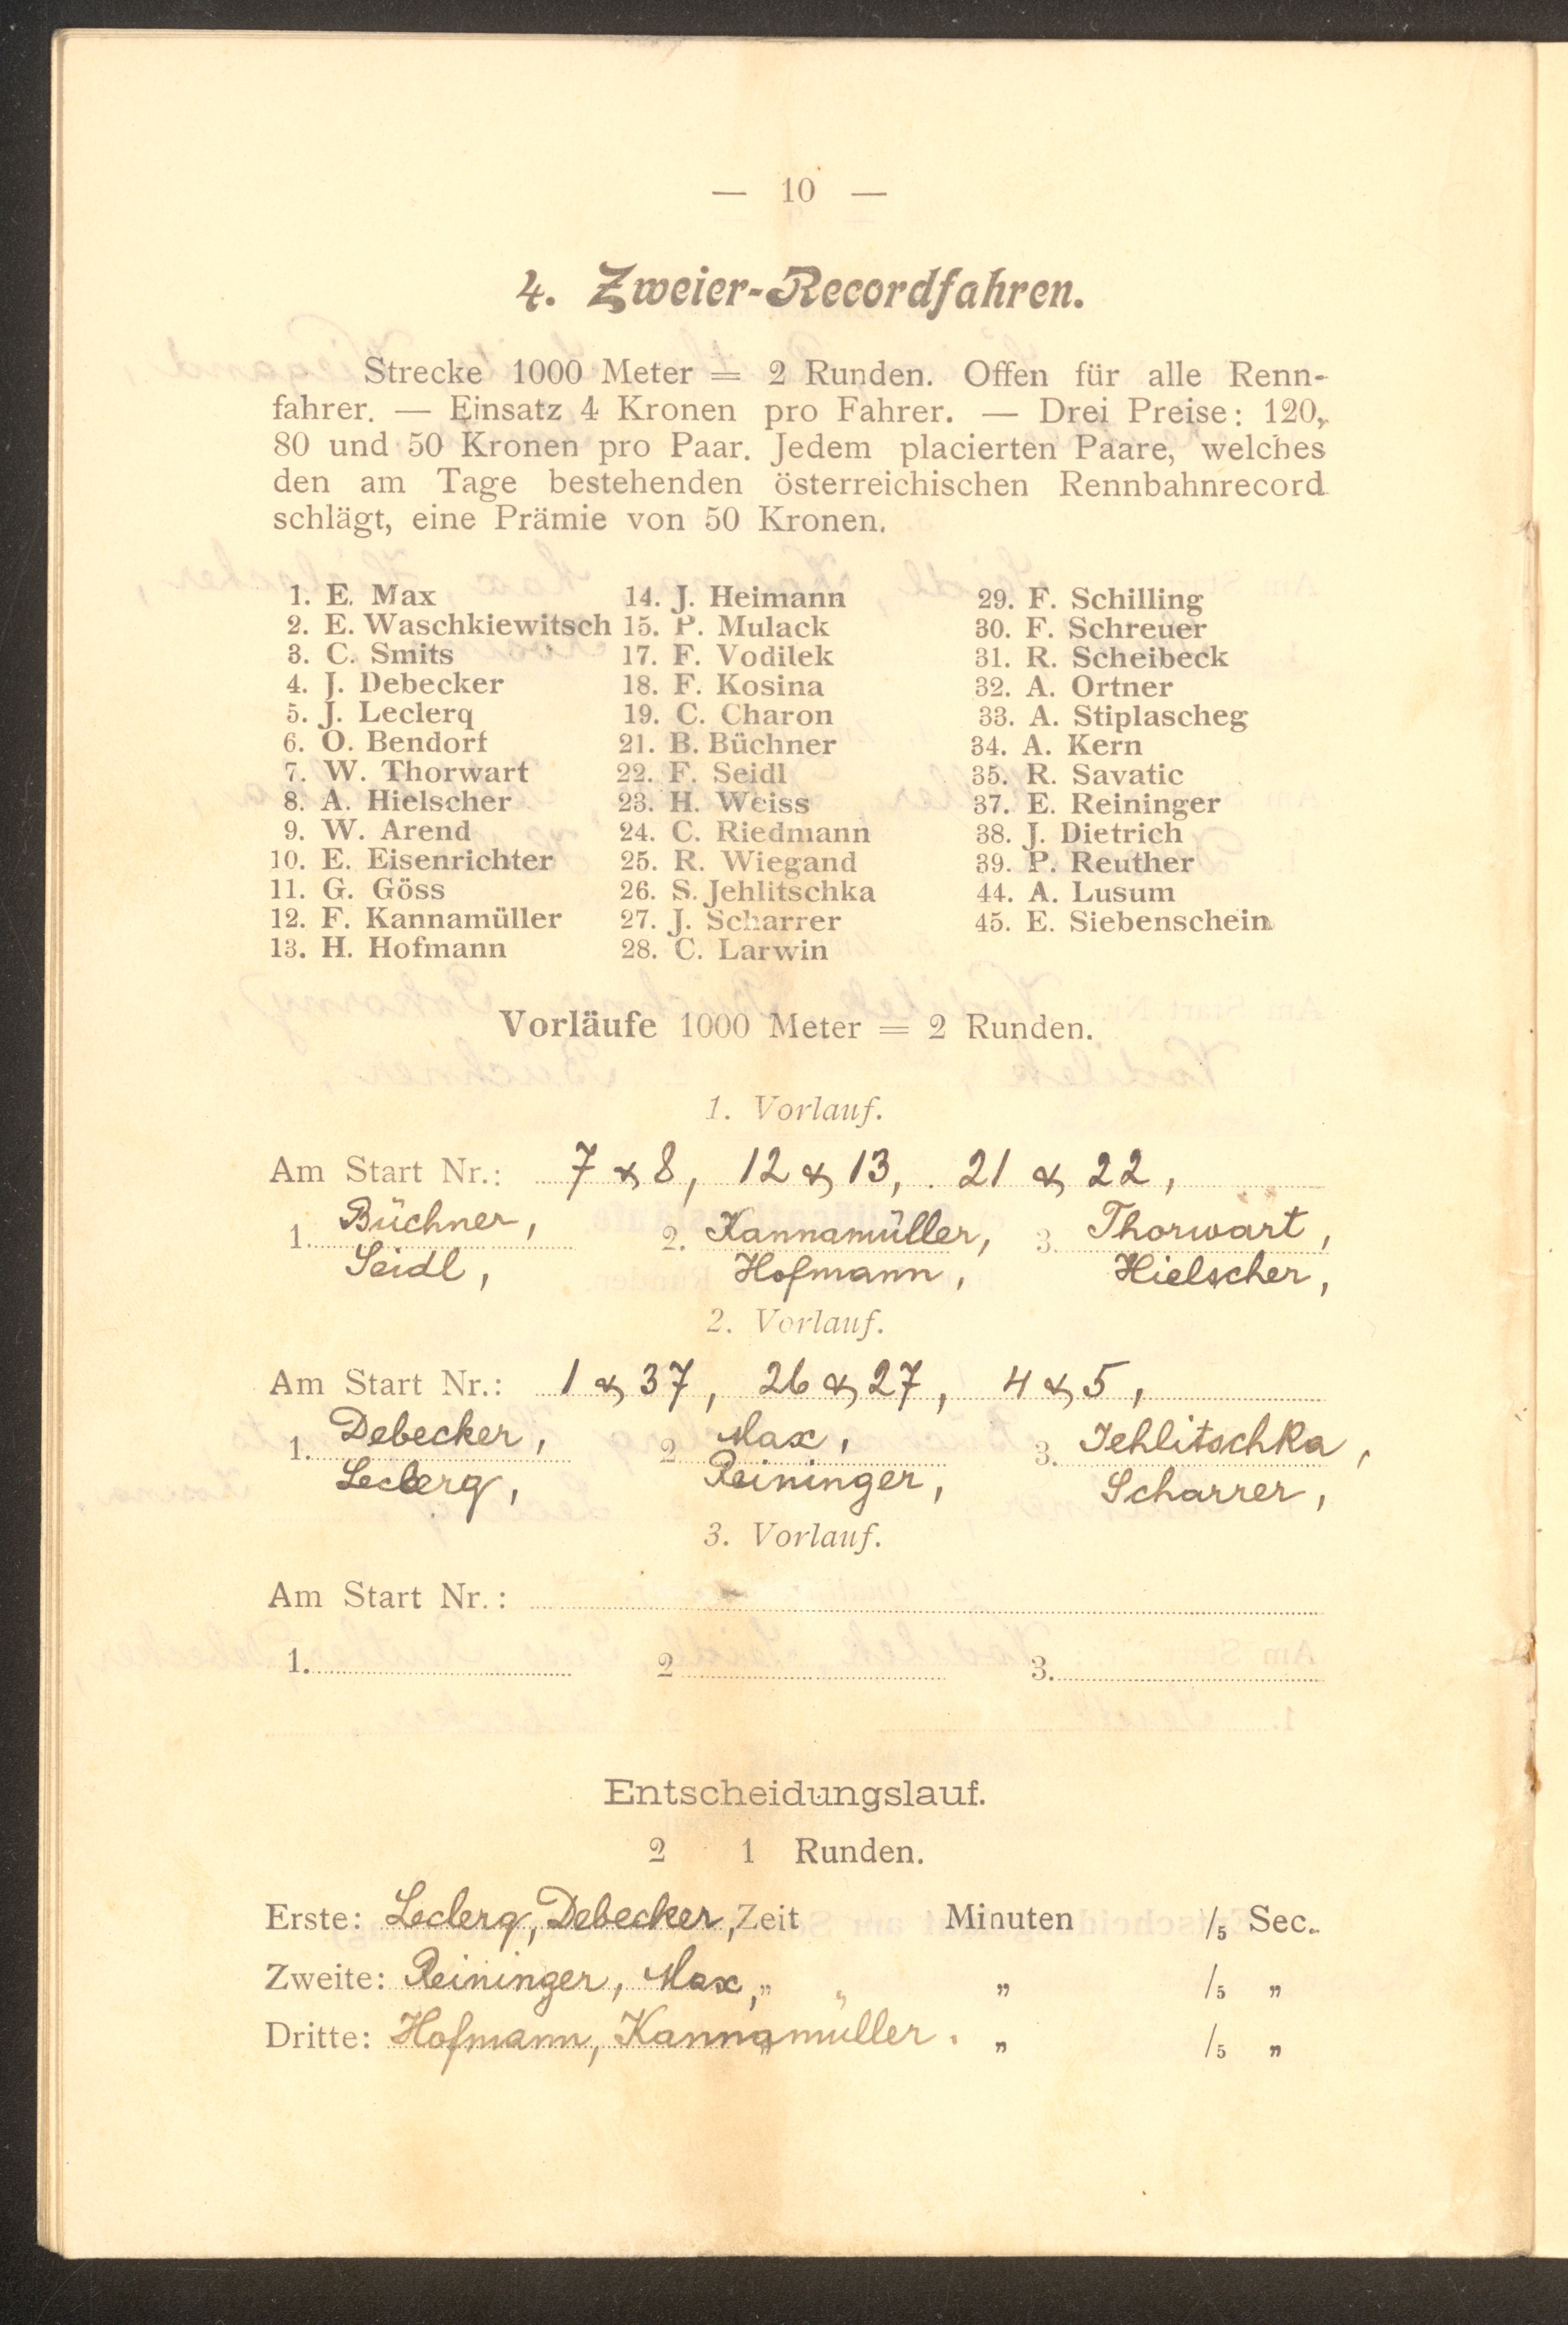 — 10 —
4. Zweier-Recordfahren.
Strecke 1000 Meter = 2 Runden. Offen für alle Renn-
fahrer. — Einsatz 4 Kronen pro Fahrer. — Drei Preise: 120,
80 und 50 Kronen pro Paar. Jedem placierten Paare, welches
den am Tage bestehenden österreichischen Rennbahnrecord
schlägt, eine Prämie von 50 Kronen.
1. E. Max
2. E. Waschkiewitsch
3. C. Smits
4. J. Debecker
5. J. Leclerq
6. O. Bendorf
7. W. Thorwart
8. A. Hielscher
9. W. Arend
10. E. Eisenrichter
11. G. Göss
12. F. Kannamüller
13. H. Hofmann
14. J. Heimann
15. P. Mulack
17. F. Vodilek
18. F. Kosina
19. C. Charon
21. B. Büchner
22. F. Seidl
23. H. Weiss
24. C. Riedmann
25. R. Wiegand
26. S. Jehlitschka
27. J. Scharrer
28. C. Larwin
29. F. Schilling
30. F. Schreuer
31. R. Scheibeck
32. A. Ortner
33. A. Stiplascheg
34. A. Kern
35. R. Savatic
37. E. Reininger
38. J. Dietrich
39. P. Reuther
44. A. Lusum
45. E. Siebenschein
Vorläufe 1000 Meter = 2 Runden.
1. Vorlauf.
Am Start Nr.: 7 & 8, 12 & 13, 21 & 22,
1. Büchner, 2. Kannamüller, 3. Thorwart,
Seidl, Hofmann, Hielscher,
2. Vorlauf.
Am Start Nr.: 1 & 37, 26 & 27, 4 & 5,
1. Debecker, 2 Max, 3. Jehlitschka,
Leclerq, Reininger, Scharrer,
3. Vorlauf.
Am Start Nr.:
1. 2 3.
Entscheidungslauf.
2 1 Runden.
Erste: Leclerq, Debecker, Zeit Minuten /5 Sec.
Zweite: Reininger, Max, „ „ „ /5 „
Dritte: Hofmann, Kannamüller. „ „ /5 „